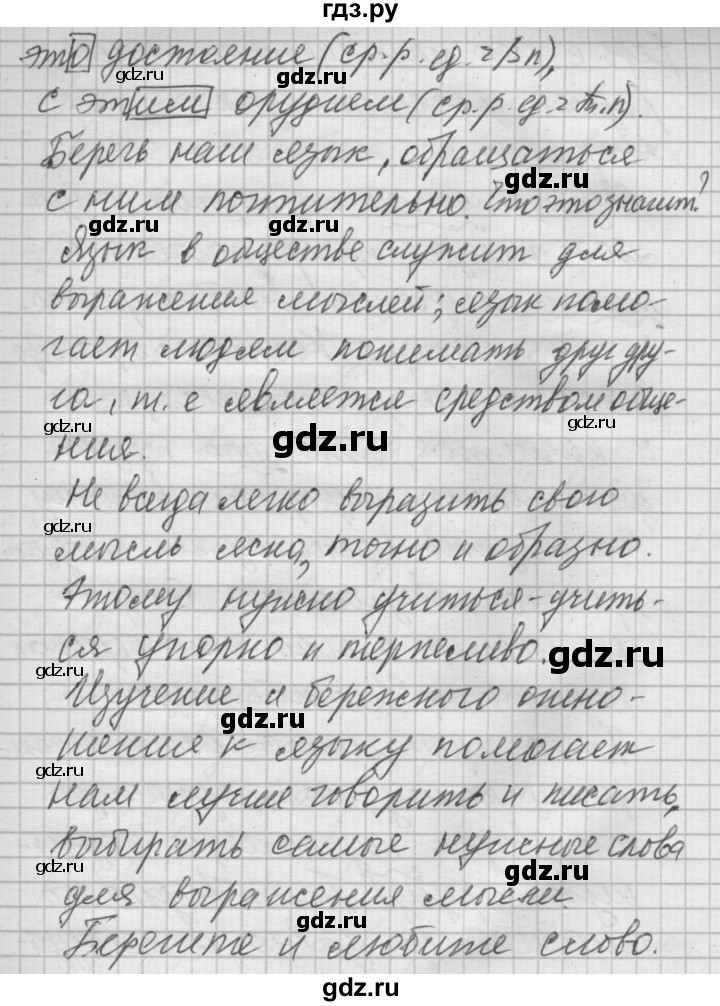 гдз.ру
это достояние (ср. р. ед. ч. В п),
с этим орудием (ср. р. ед. ч. Тв. п).
Беречь наш язык, обращаться
с ним почтительно. Что это значит?
Язык в обществе служит для
выражения мыслей; язык помо-
гает людям понимать друг дру-
га, т. е является средством обще-
ния.
Не всегда легко выразить свою
мысль ясно, точно и образно.
Этому нужно учиться - учить-
ся упорно и терпеливо.
Изучение и бережного отно-
шения к языку помогает
нам лучше говорить и писать,
выбирать самые нужные слова
для выражения мысли.
Берегите и любите слово.
gdz.ru